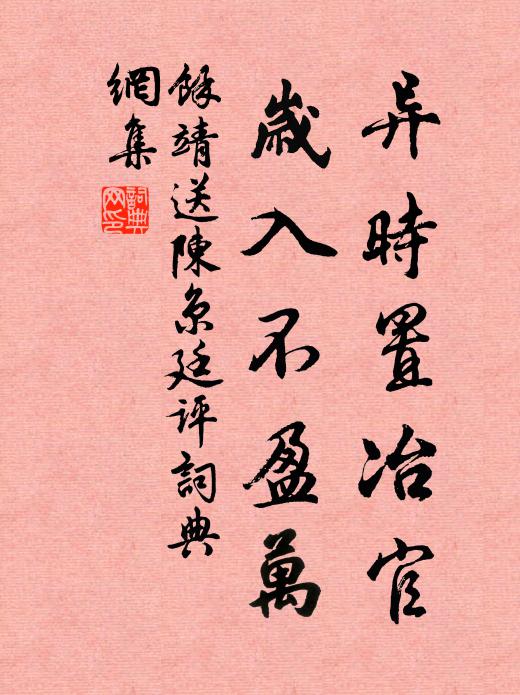 异時置冶官
歲入不盈萬
餘靖送陳京廷評詞典
網集
詞典
网印